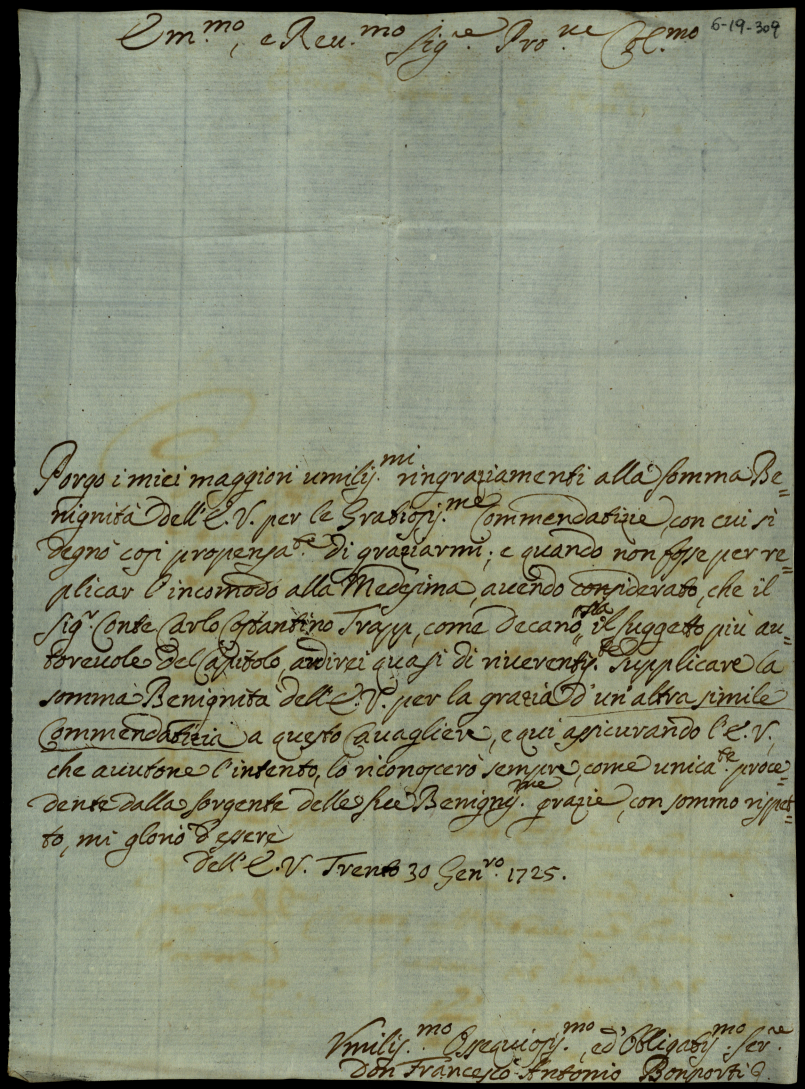 6-19-309
Em.mo, e Reu.mo Sig.re Pro.ne Col.mo
Porgo i miei maggiori umiliss.mi ringraziamenti alla somma Be=
nignità dell'E.V. per le Gratiosiss.me Commendatizie, con cui si
degnò così propensa.te di graziarmi; e quando non fosse per re=
plicar l'incomodo alla Medesima, auendo considerato, che il
Sig.r Conte Carlo Costantino Trapp, come Decano, sia il suggetto più au=
toreuole del Capitolo, ardirei quasi di riuerentiss.te Supplicare la
somma Benignità dell'E.V. per la grazia d'un'altra simile
Commendatizia a questo Caualiere, e qui assicurando l'E.V.,
che auutone l'intento, lo riconoscerò sempre, come unica.te proce=
dente dalla sorgente delle sue Benigniss.me grazie, con sommo rispet=
to, mi glorio d'essere
dell'E.V. Trento 30 Gen.ro 1725.
Vmiliss.mo Ossequiosiss.mo, ed Obligatiss.mo Ser.re
Don Francesco Antonio Bonporti